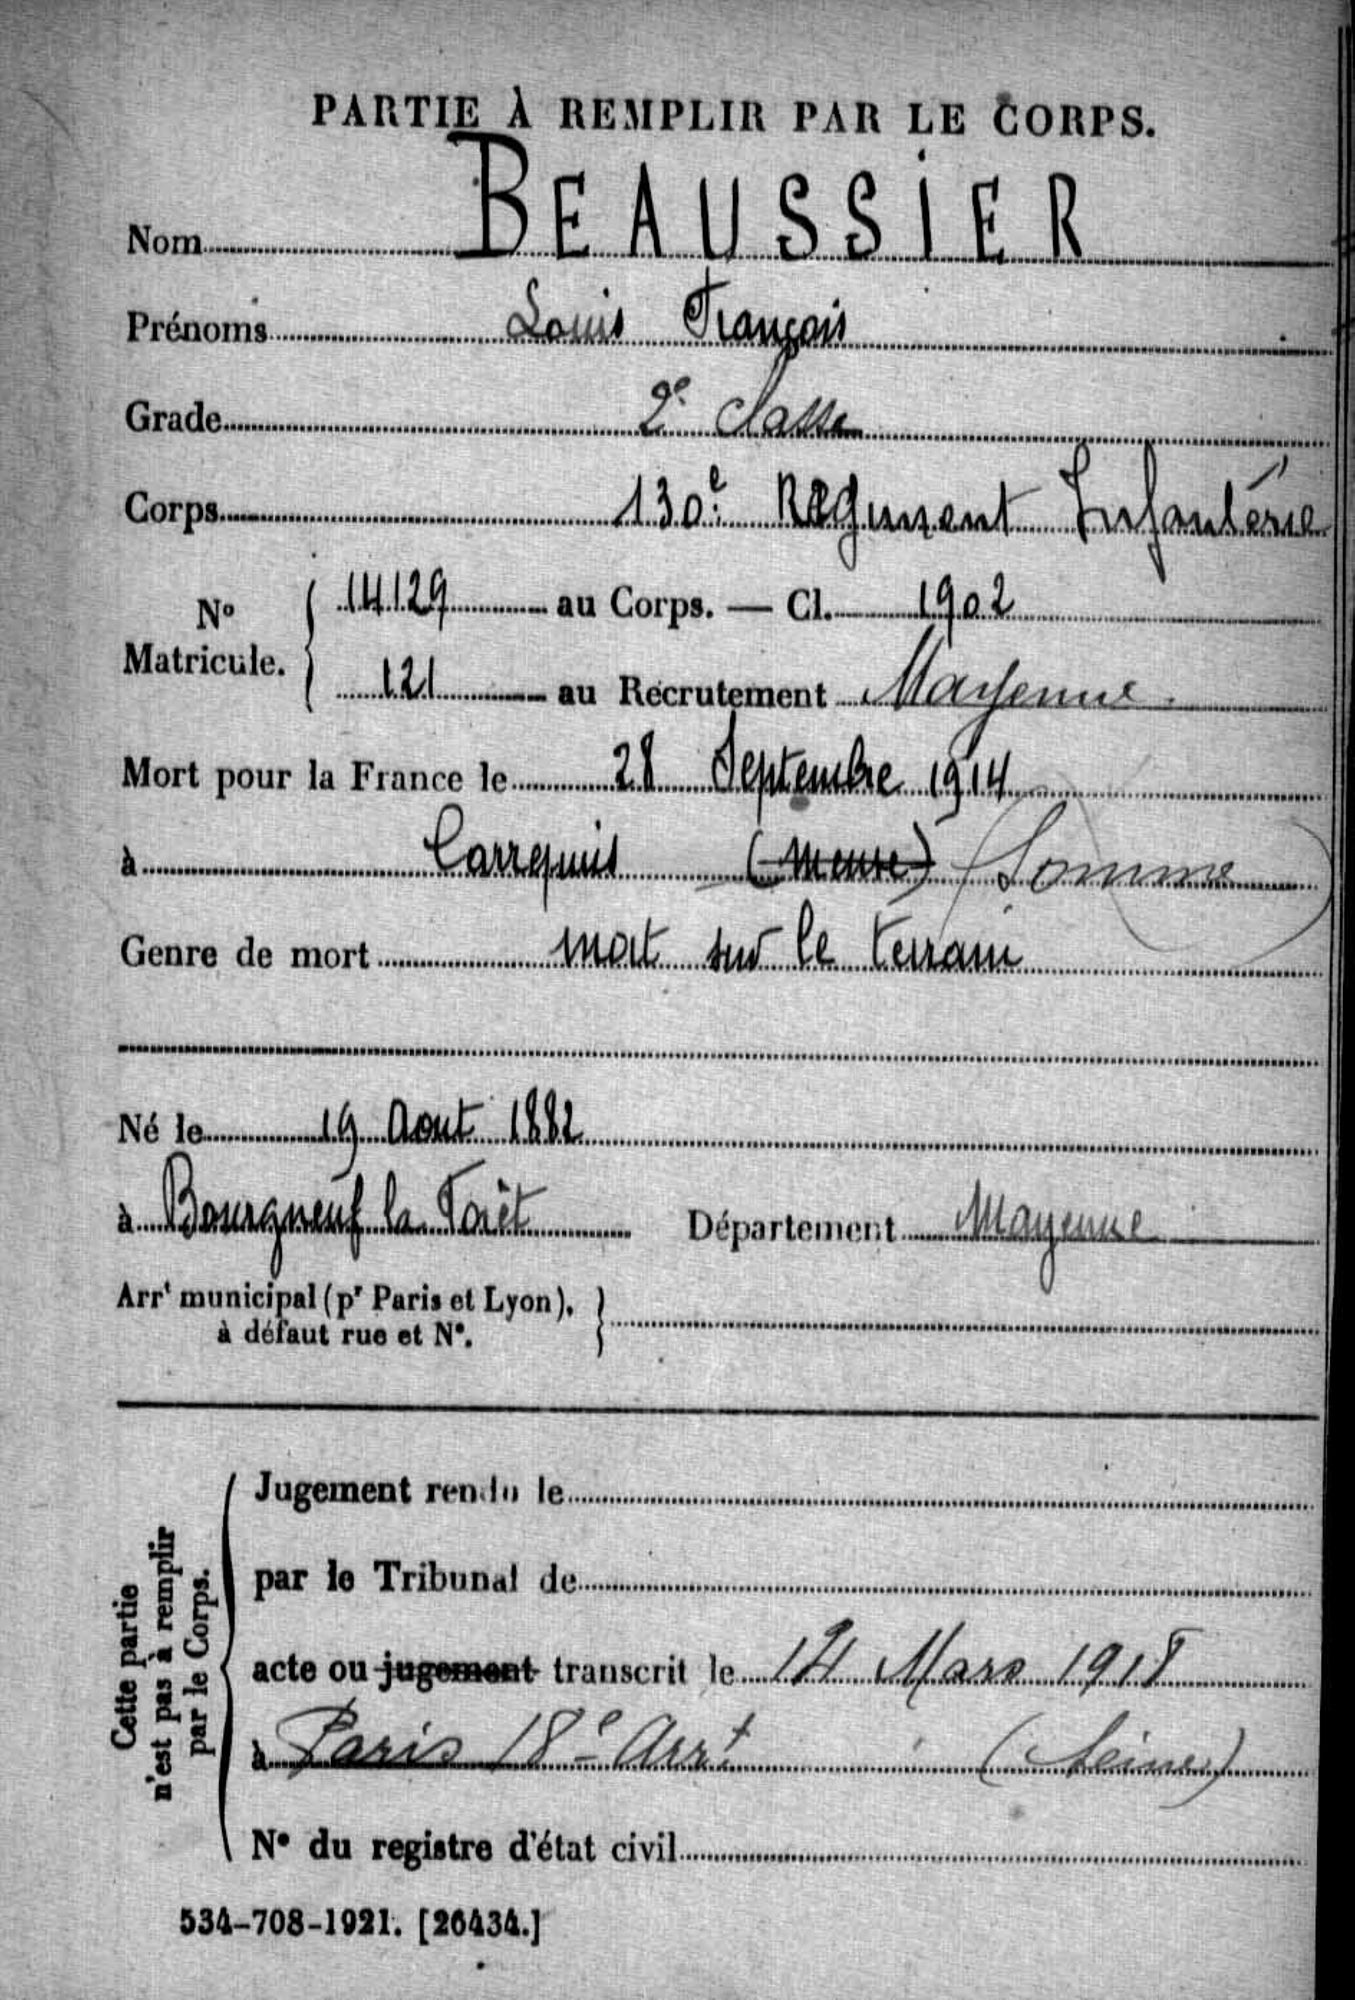 PARTIE À REMPLIR PAR LE CORPS.
Nom BEAUSSIER
Prénoms Louis François
Grade 2e classe
Corps 130e Régiment Infantérie
N° Matricule. 14129 au Corps. — Cl. 1902
121 au Recrutement Mayenne.
Mort pour la France le 28 Septembre 1914
à Carrepuis (Meuse) (Somme)
Genre de mort mort sur le terrain
Né le 19 Aout 1882
à Bourgneuf la Forêt Département Mayenne
Arrt municipal (pr Paris et Lyon),
à défaut rue et N°.
Cette partie
n'est pas à remplir
par le Corps.
Jugement rendu le
par le Tribunal de
acte ou jugement transcrit le Mars 1918
à Paris 18e Arrt (Seine)
N° du registre d'état civil
534-708-1921. [26434.]